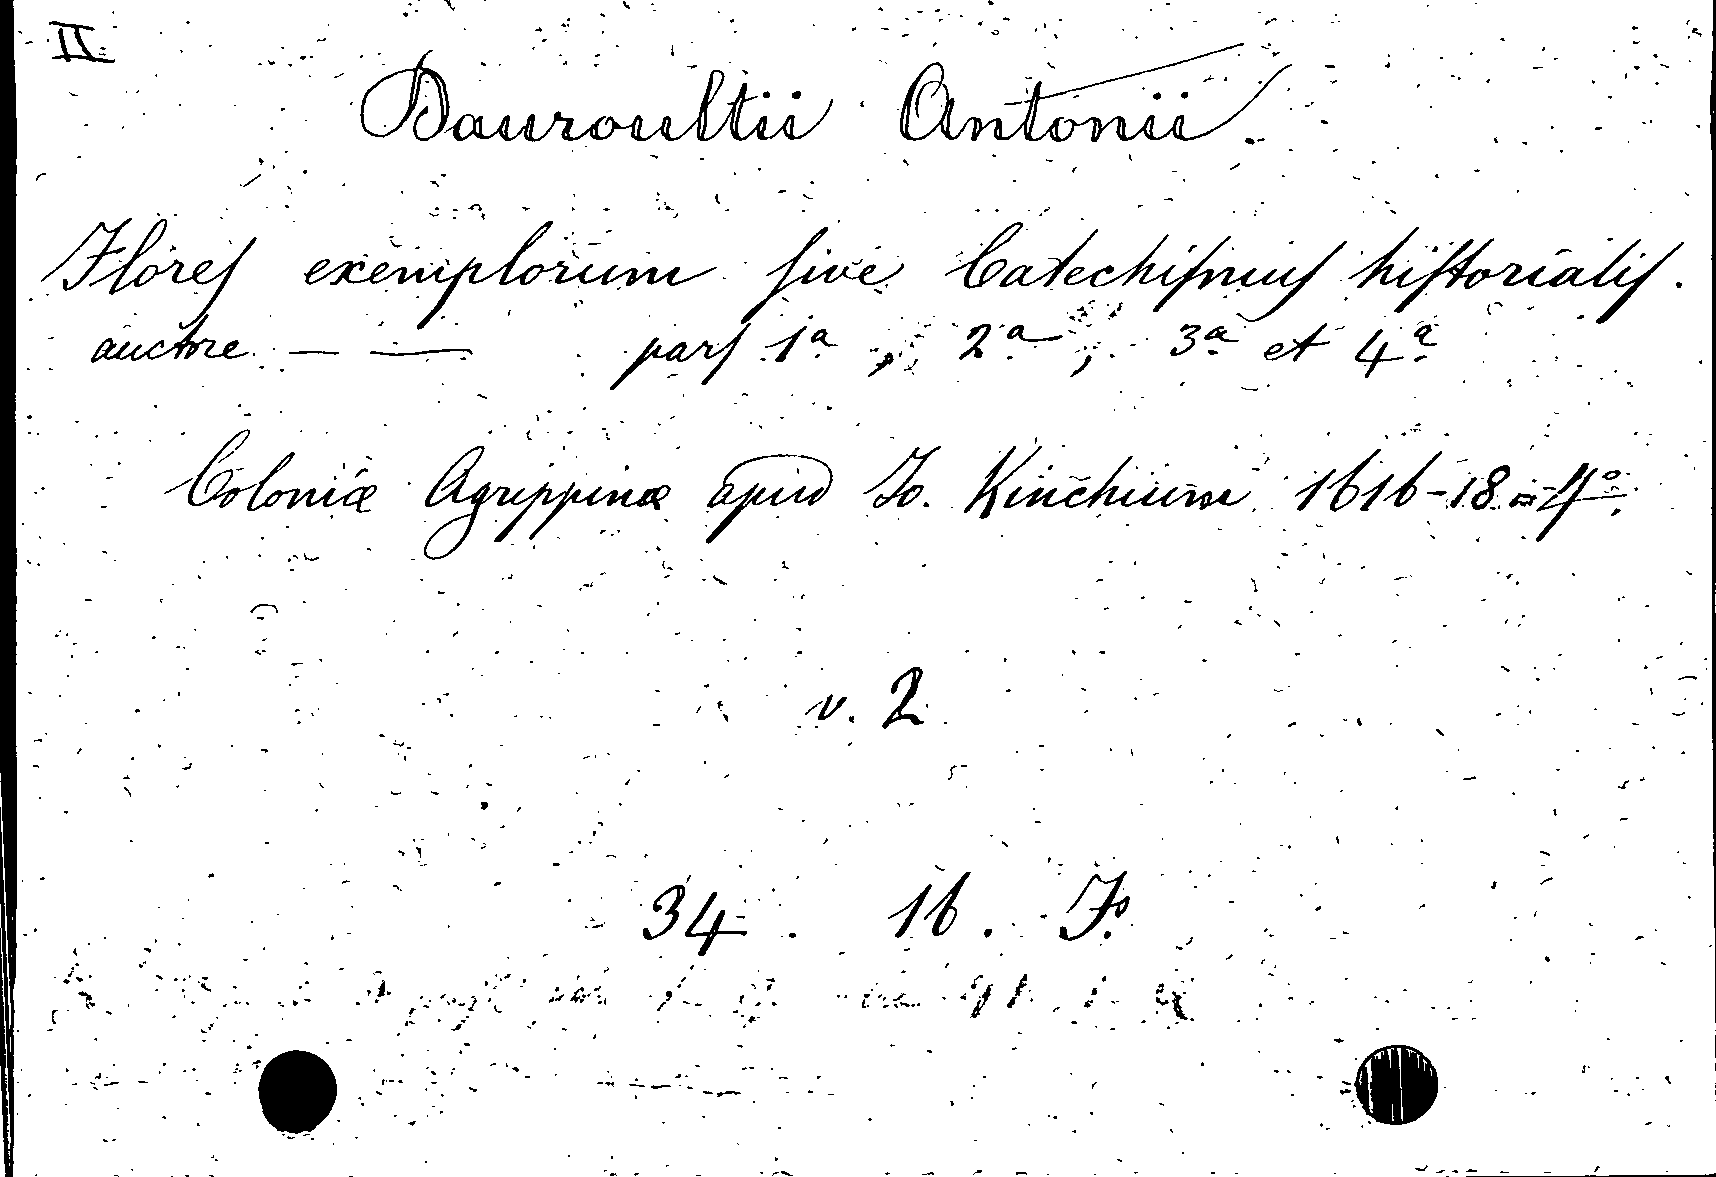 II.
Dauroultii Antonii
Flores exemplorum sive Catechismus historialis.
auctore — — pars 1ª, 2ª, 3ª et 4ª
Coloniæ Agrippinæ apud Jo. Kinchium 1616-18 = 4º.
v. 2
34. 16. F.